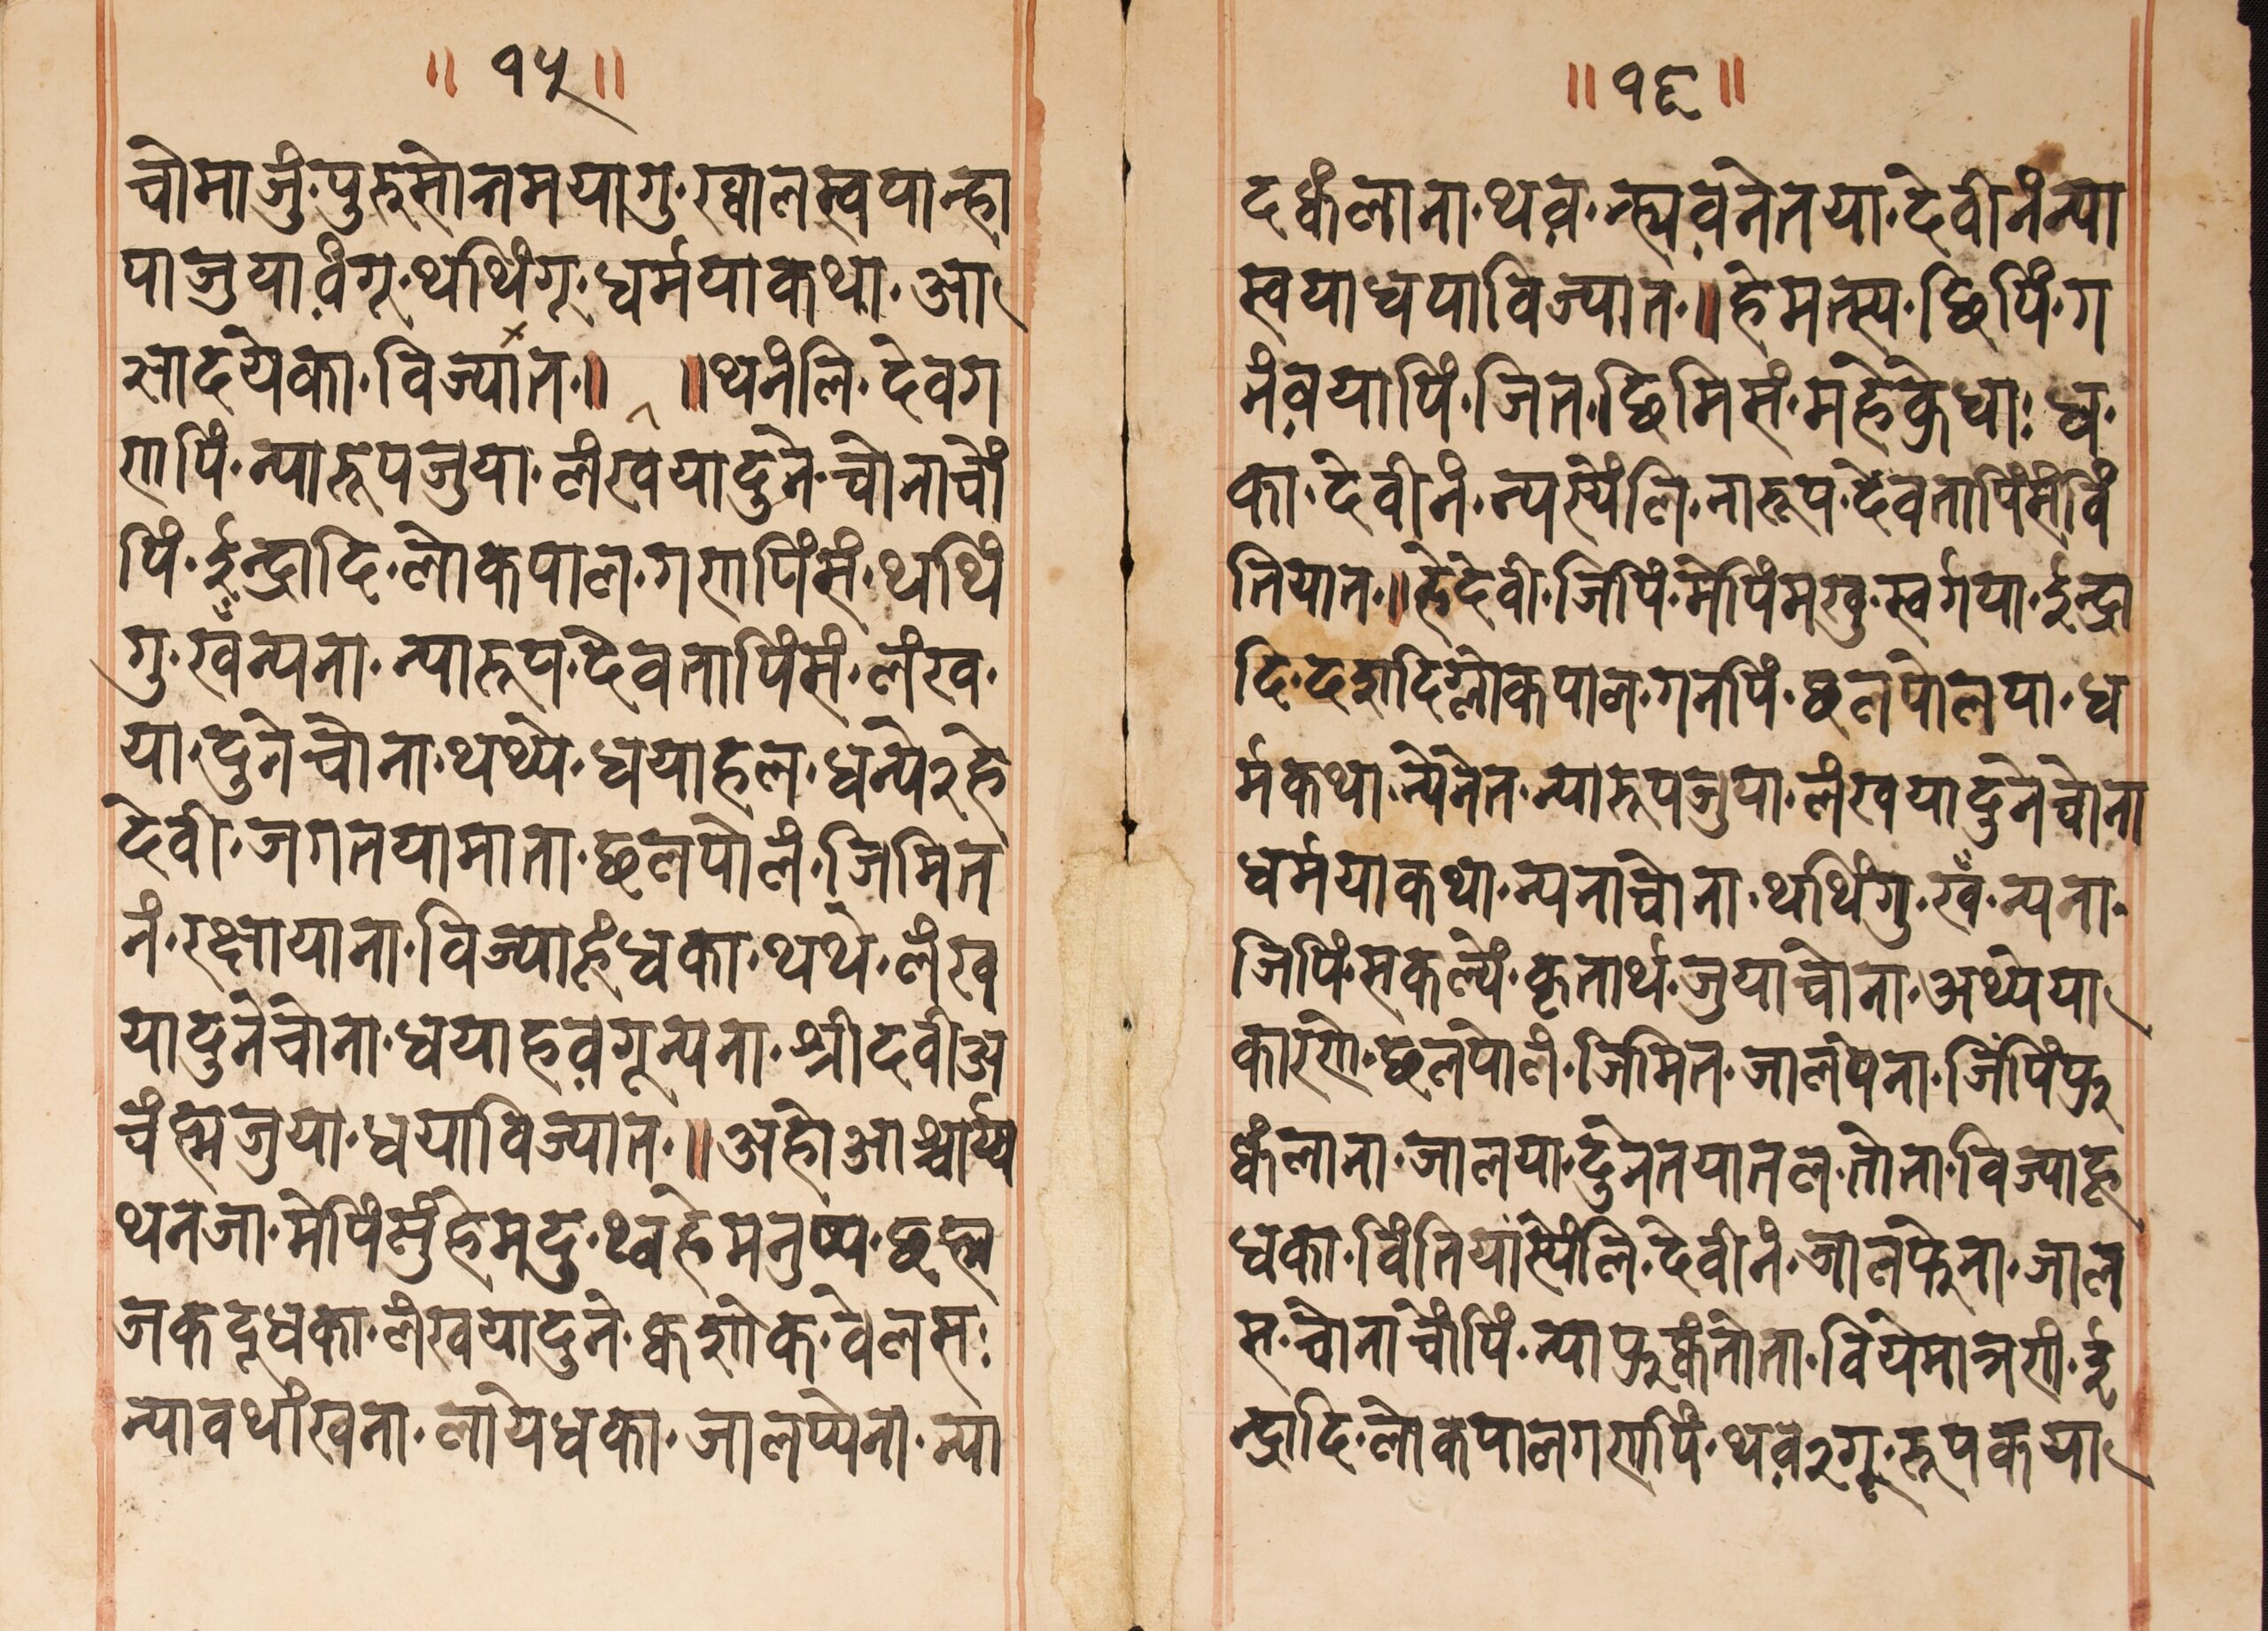 ॥ १५ ॥
चोमाजुं·पुरुसोत्तमयागु·ख्वालस्वयान्ह्रा
पाजुयाव़ंगू·थथिंगू·धर्मयाकथा·आ
सादयेका·विज्यात·॥ ॥थनंलि·देवग
णपिं·न्यारूपजुया·लंखयादुने·चोनाचों
पिं·ईन्द्रादि·लोकपाल·गणपिंसं·थथिं
गु·खँन्यना·न्यारूप·देवतापिंसं·लंख·
या·दुनेचोना·थथ्ये·धयाहल·धन्ये२हे
देवी·जगतयामाता·छलपोलं·जिमित
नं·रक्षायाना·विज्याहुंधका·थथे·लंख
यादुनेचोना·धयाहव़गून्यना·श्रीदेवीअ
चंह्मजुया·धयाविज्यात·॥अहोआश्चार्य्य
थनजा·मेपिंसुंहेमदु·थ्वहेमनुष्य·छह्म
जकदूधका·लंखयादुने·क्वशोक·वेलसः
न्यावथांखना·लायेधका·जालप्येना·न्या
॥१६॥
दक्वंलाना·थव़·न्ह्यव़नेतया·देवीनंन्या
स्वयाधयाविज्यात·॥हेमत्स्य·छिपिं·ग
नंव़यापिं·जित·छिमिसं·मह्रेक्रेधाः·ध·
का·देवीनं·न्यस्येंलि·नारूप·देवतापिंसंविं
तियात·॥हेदेवी·जिपिं·मेपिंमखु·स्वर्गया·ईन्द्रा
दि·दशदिग्लोकपाल·गनपिं·छलपोलया·ध
र्मकथा·न्येनेत·न्यारूपजुया·लंखयादुनेचोना
धर्मयाकथा·न्यनाचोना·थथिंगु·खँ·न्यना·
जिपिं·सकल्यें·कृतार्थ·जुयाचोना·अथ्येया
कारणे·छलपोलं·जिमित·जालंपेना·जिंपिंफु
क्वंलाना·जालया·दुनेतयातल·तोता·विज्याहु
धका·विंतियास्येंलि·देवीनं·जालफेना·जाल
स·चोनाचोंपिं·न्याफुक्कंतोता·वियेमात्रणं·ई
न्द्रादि·लोकपालगणपिं·थव़२गू·रूपकया